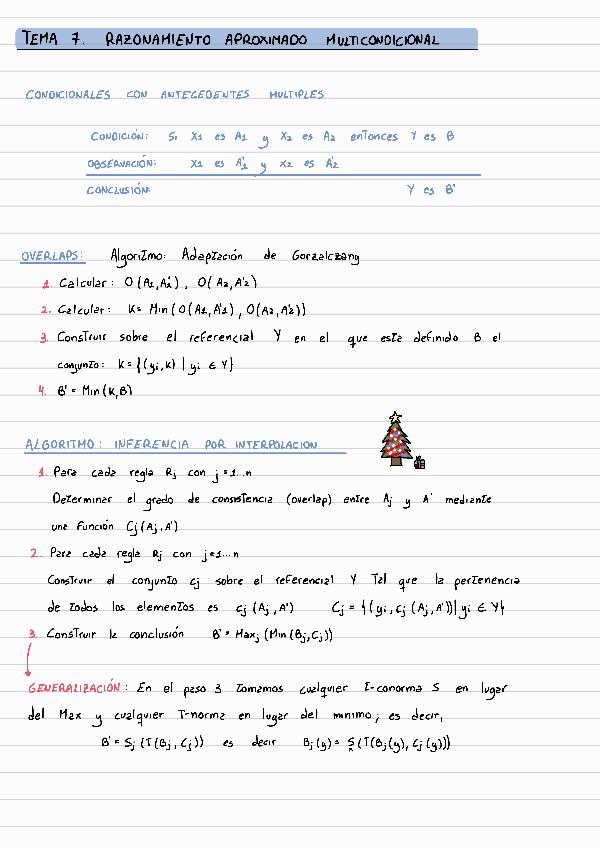 TEMA 7. RAZONAMIENTO APROXIMADO MULTICONDICIONAL
CONDICIONALES CON ANTECEDENTES MULTIPLES
CONDICIÓN: Si X1 es A1 y X2 es A2 entonces Y es B
OBSERVACIÓN: X1 es A'1 y X2 es A'2
CONCLUSIÓN: Y es B'
OVERLAPS: Algoritmo: Adaptación de Gorzalczang
1. Calcular: O(A1,A'1), O(A2,A'2)
2. Calcular: K= Min(O(A1,A'1), O(A2,A'2))
3. Construir sobre el referencial Y en el que este definido B el
conjunto: K={(yi,K) | yi ∈ Y}
4. B' = Min(K,B)
ALGORITMO: INFERENCIA POR INTERPOLACION
1. Para cada regla Rj con j=1...n
Determinar el grado de consistencia (overlap) entre Aj y A' mediante
una función Cj(Aj,A')
2. Para cada regla Rj con j=1...n
Construir el conjunto cj sobre el referencial Y Tal que la pertenencia
de todos los elementos es cj(Aj,A') Cj = {(yi,cj(Aj,A'))| yi ∈ Y}
3. Construir la conclusión B' = Maxj(Min(Bj,Cj))
GENERALIZACIÓN: En el paso 3 tomamos cualquier t-conorma S en lugar
del Max y cualquier T-norma en lugar del minimo; es decir,
B' = Sj(T(Bj,Cj)) es decir Bj(y) = S(T(Bj(y),Cj(y)))